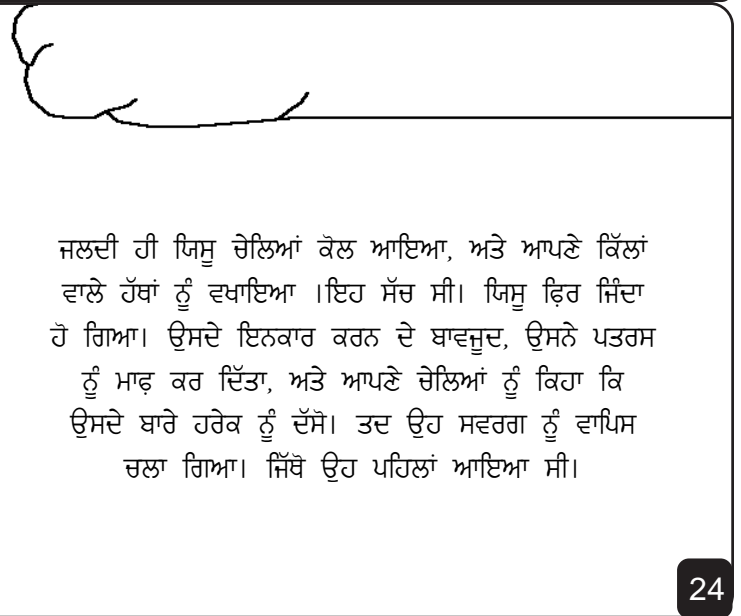 ਜਲਦੀ ਹੀ ਯਿਸੂ ਚੇਲਿਆਂ ਕੋਲ ਆਇਆ, ਅਤੇ ਆਪਣੇ ਕਿੱਲਾਂ
ਵਾਲੇ ਹੱਥਾਂ ਨੂੰ ਵਖਾਇਆ ।ਇਹ ਸੱਚ ਸੀ। ਯਿਸੂ ਫ਼ਿਰ ਜਿੰਦਾ
ਹੋ ਗਿਆ। ਉਸਦੇ ਇਨਕਾਰ ਕਰਨ ਦੇ ਬਾਵਜੂਦ, ਉਸਨੇ ਪਤਰਸ
ਨੂੰ ਮਾਫ਼ ਕਰ ਦਿੱਤਾ, ਅਤੇ ਆਪਣੇ ਚੇਲਿਆਂ ਨੂੰ ਕਿਹਾ ਕਿ
ਉਸਦੇ ਬਾਰੇ ਹਰੇਕ ਨੂੰ ਦੱਸੋ। ਤਦ ਉਹ ਸਵਰਗ ਨੂੰ ਵਾਪਿਸ
ਚਲਾ ਗਿਆ। ਜਿੱਥੋ ਉਹ ਪਹਿਲਾਂ ਆਇਆ ਸੀ।
24